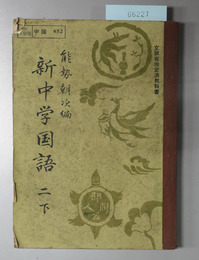 66227
中国 852
文部省検定済教科書
能勢朝次編
新中学国語 二下